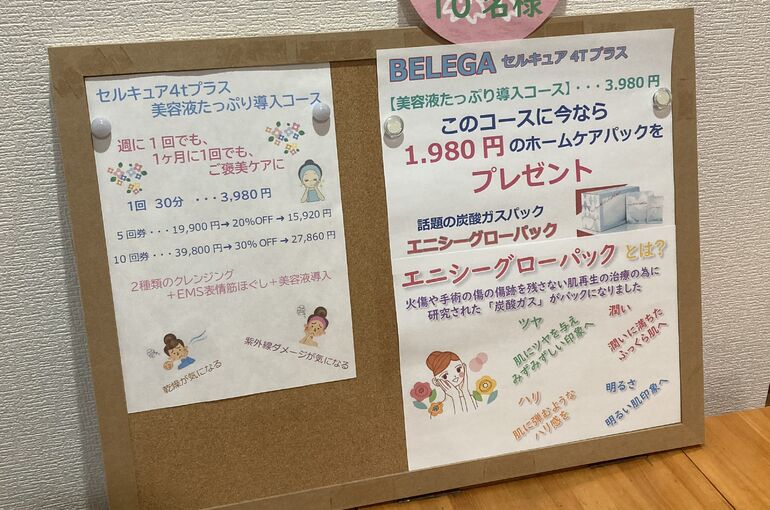 10名様
セルキュア4tプラス
美容液たっぷり導入コース
週に1回でも、
1ヶ月に1回でも、
ご褒美ケアに
1回 30分 ・・・3,980円
5回券・・・19,900円→20%OFF→15,920円
10回券・・・39,800円→30%OFF→27,860円
2種類のクレンジング
+EMS表情筋ほぐし+美容液導入
乾燥が気になる
紫外線ダメージが気になる
BELEGA セルキュア 4Tプラス
【美容液たっぷり導入コース】・・・3.980円
このコースに今なら
1.980円のホームケアパックを
プレゼント
話題の炭酸ガスパック
エニシーグローパック
エニシーグローパックとは?
火傷や手術の傷の傷跡を残さない肌再生の治療の為に
研究された「炭酸ガス」がパックになりました
ツヤ
肌にツヤを与え
みずみずしい印象へ
潤い
潤いに満ちた
ふっくら肌へ
ハリ
肌に弾むような
ハリ感を
明るさ
明るい肌印象へ